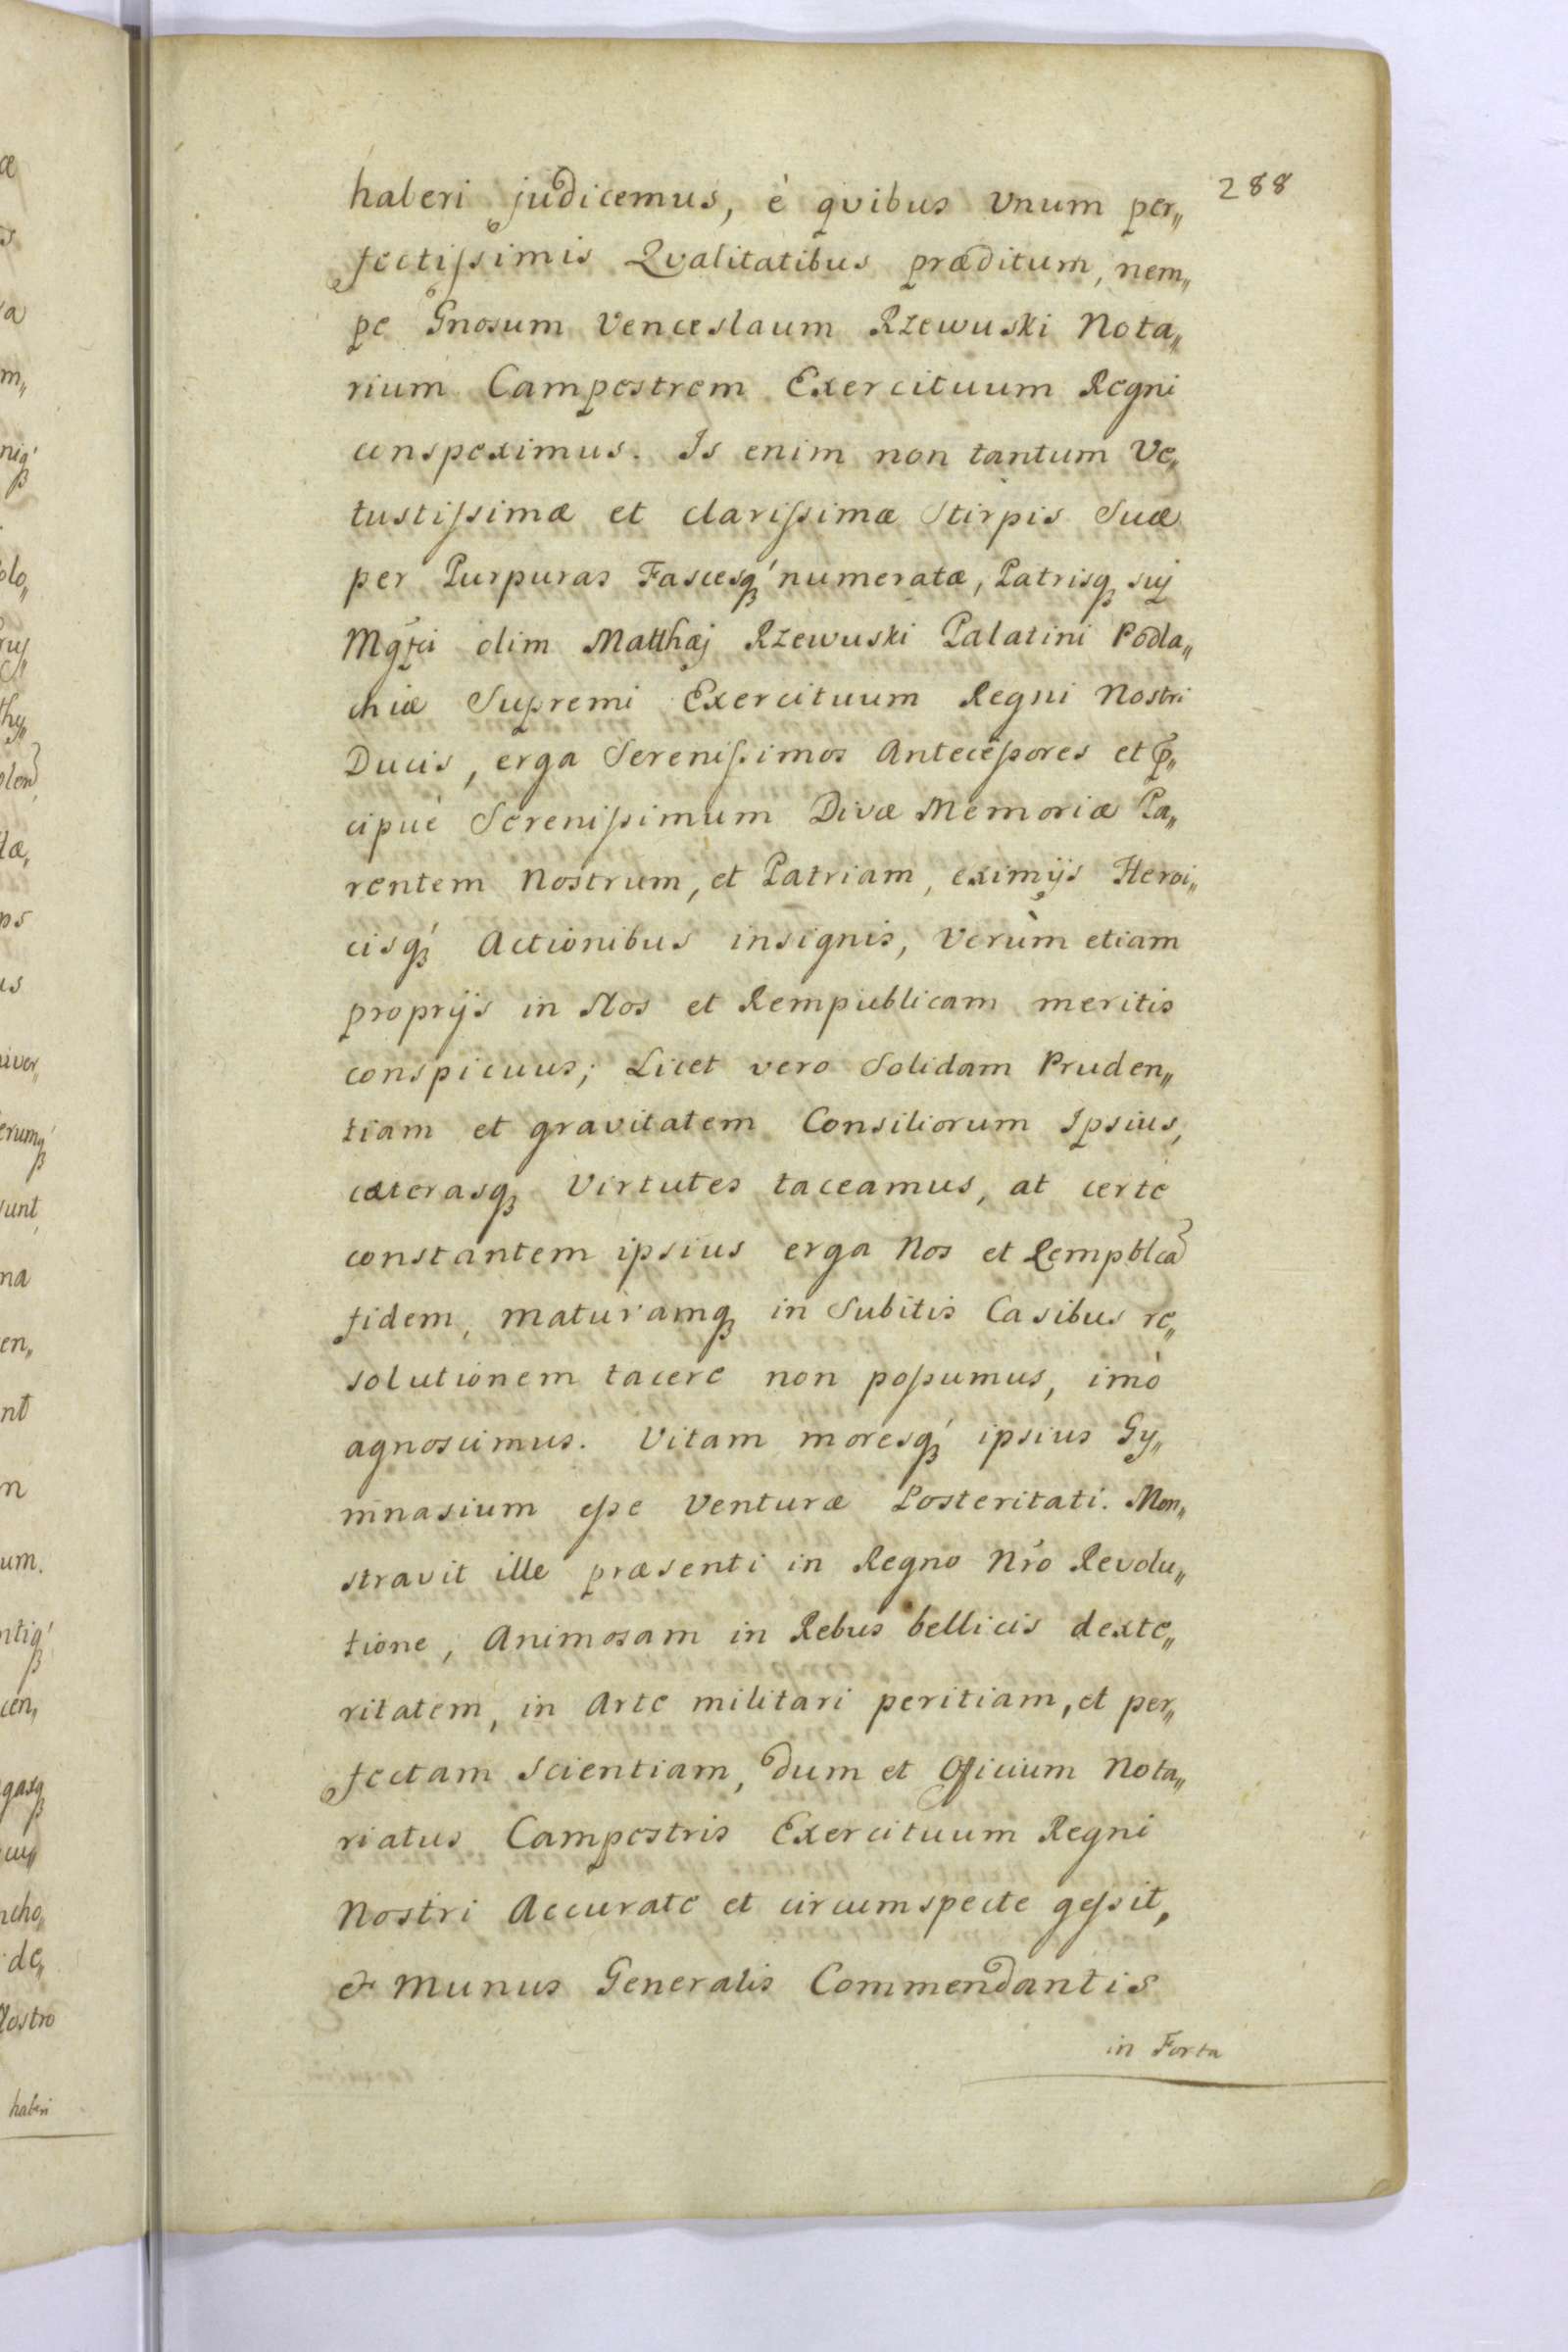 288
haberi judicemus, è qvibus Vnum per„
fectiſsimis Qvalitatibus præditum, nem„
pe Gnosum Venceslaum Rzewuski Nota„
rium Campestrem Exercituum Regni
conspeximus. Is enim non tantum Ve„
tustiſsimæ et clariſsimæ Stirpis Suæ
per Purpuras Fascesq́ numeratæ, Patrisq suj
Mgfci olim Matthæj Rzewuski Palatini Podla„
chiæ Supremi Exercituum Regni Nostri
Ducis, erga Sereniſsimos Anteceſsores et p̃„
cipuè Sereniſsimum Divæ Memoriæ Pa„
rentem Nostrum, et Patriam, eximijs Heroi„
cisq́ Actionibus insignis, Verùm etiam
proprijs in Nos et Rempublicam meritis
conspicuus; Licet vero Solidam Pruden„
tiam et gravitatem Consiliorum Ipsius,
cæterasq Virtutes taceamus, at certe
constantem ipsius erga Nos et Rempblcã
fidem, maturamq in Subitis Casibus re„
solutionem tacere non poſsumus, imò
agnoscimus. Vitam moresq́ ipsius Gy„
mnasium eſse Venturæ Posteritati. Mon„
stravit ille præsenti in Regno Nr̃o Revolu„
tione, Animosam in Rebus bellicis dexte„
ritatem, in Arte militari peritiam, et per„
fectam scientiam, dum et Officium Nota„
riatus Campestris Exercituum Regni
Nostri Accurate et circumspecte geſsit,
& Munus Generalis Commendantis
in Forta